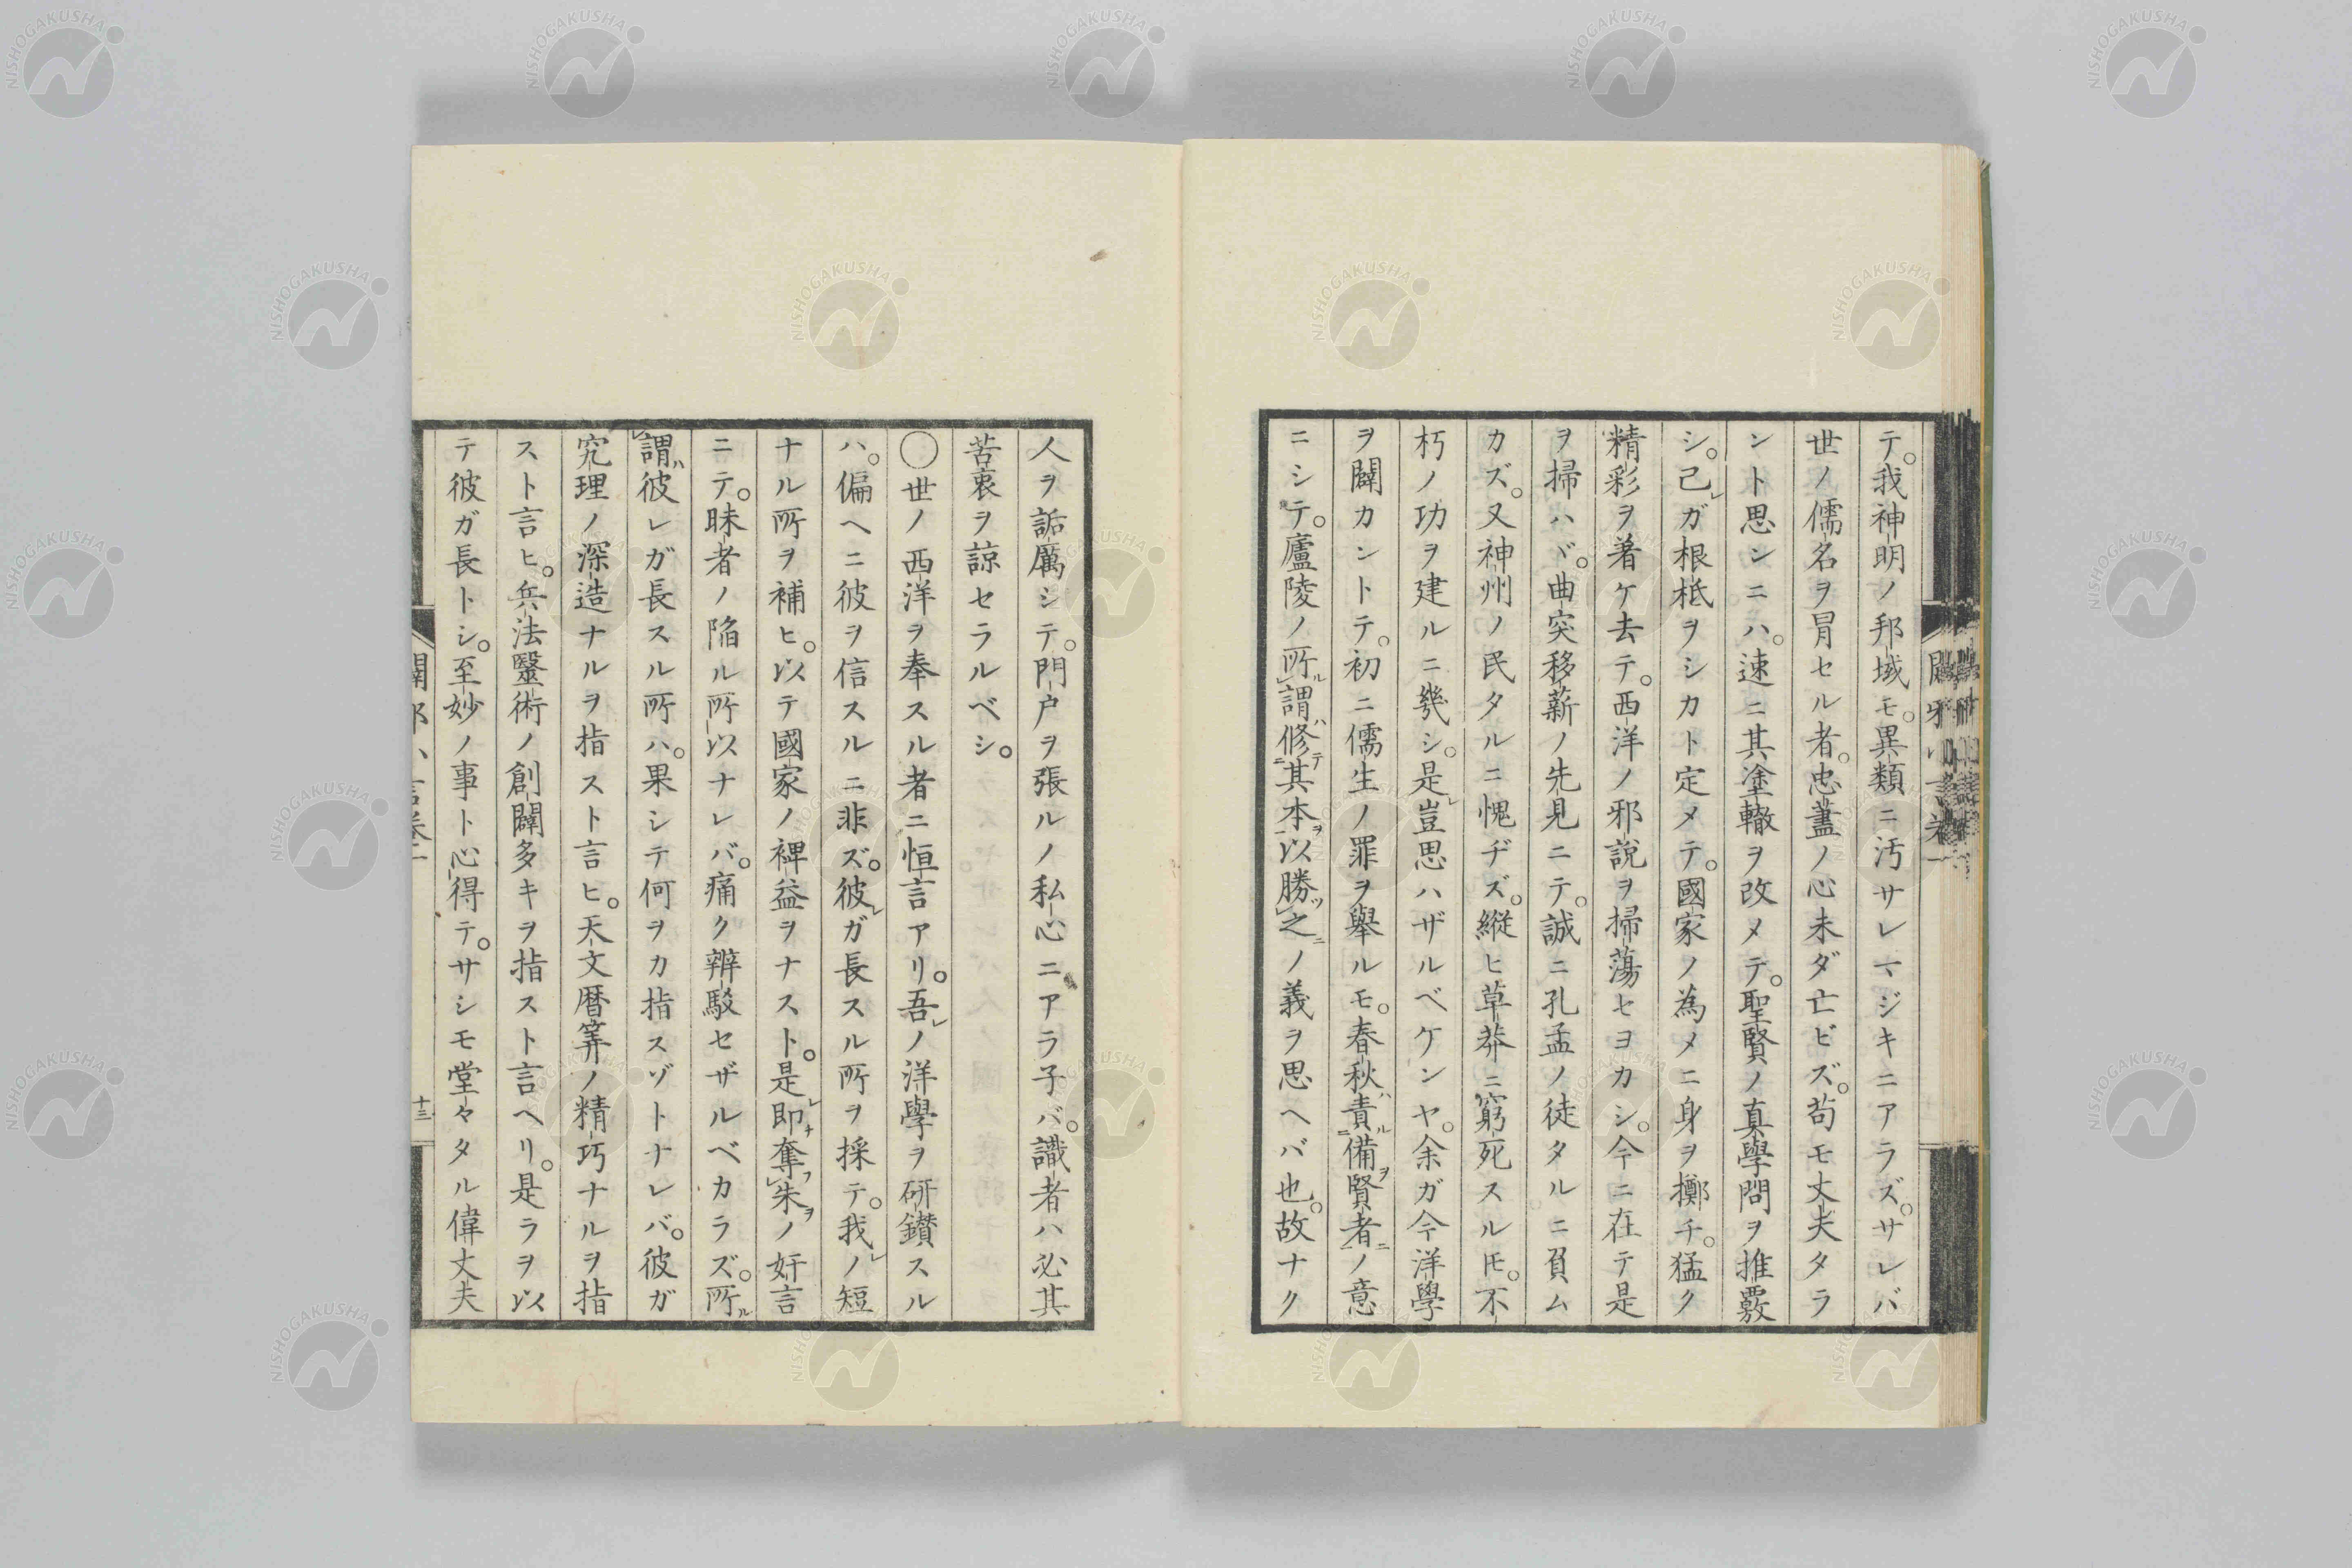 テ。我神明ノ邦域モ。異類ニ汚サレマジキニアラズ。サレバ
世ノ儒名ヲ冒セル者。忠藎ノ心未ダ亡ビズ。苟モ丈夫タラ
ント思ンニハ。速ニ其塗轍ヲ改メテ。聖賢ノ真學問ヲ推覈
シ。己レガ根柢ヲシカト定メテ。國家ノ為メニ身ヲ擲チ。猛ク
精彩ヲ着ケ去テ。西洋ノ邪說ヲ掃蕩セヨカシ。今ニ在テ是
ヲ掃ハヾ。曲突移薪ノ先見ニテ。誠ニ孔孟ノ徒タルニ負ム
カズ。又神州ノ民タルニ愧ヂズ。縱ヒ草莽ニ窮死スル𪜈。不
朽ノ功ヲ建ルニ幾シ。是レ豈思ハザルベケンヤ。余ガ今洋學
ヲ闢カントテ。初ニ儒生ノ罪ヲ擧ルモ。春秋ハ責ルニ備ヲ賢者ニノ意
ニシテ。廬陵ノ所ル謂ハ修テ其本ヲ以勝ツ之ニノ義ヲ思ヘバ也。故ナク
人ヲ詬厲シテ。門户ヲ張ルノ私心ニアラ子バ。識者ハ必其
苦衷ヲ諒セラルベシ。
○世ノ西洋ヲ奉スル者ニ恒言アリ。吾レノ洋學ヲ研鑚スル
ハ。偏ヘニ彼ヲ信スルニ非ズ。彼レガ長スル所ヲ採テ。我レノ短
ナル所ヲ補ヒ。以テ國家ノ裨益ヲナスト。是レ即チ奪フ朱ヲノ奸言
ニテ。昧者ノ陥ル所以ナレバ。痛ク辨駁セザルベカラズ。所ル
謂ハ彼レガ長スル所ハ。果シテ何ヲカ指スゾトナレバ。彼ガ
究理ノ深造ナルヲ指スト言ヒ。天文暦算ノ精巧ナルヲ指
スト言ヒ。兵法醫術ノ創闢多キヲ指スト言ヘリ。是ラヲ以
テ彼ガ長トシ。至妙ノ事ト心得テ。サシモ堂々タル偉丈夫
闢邪小言卷一
十三